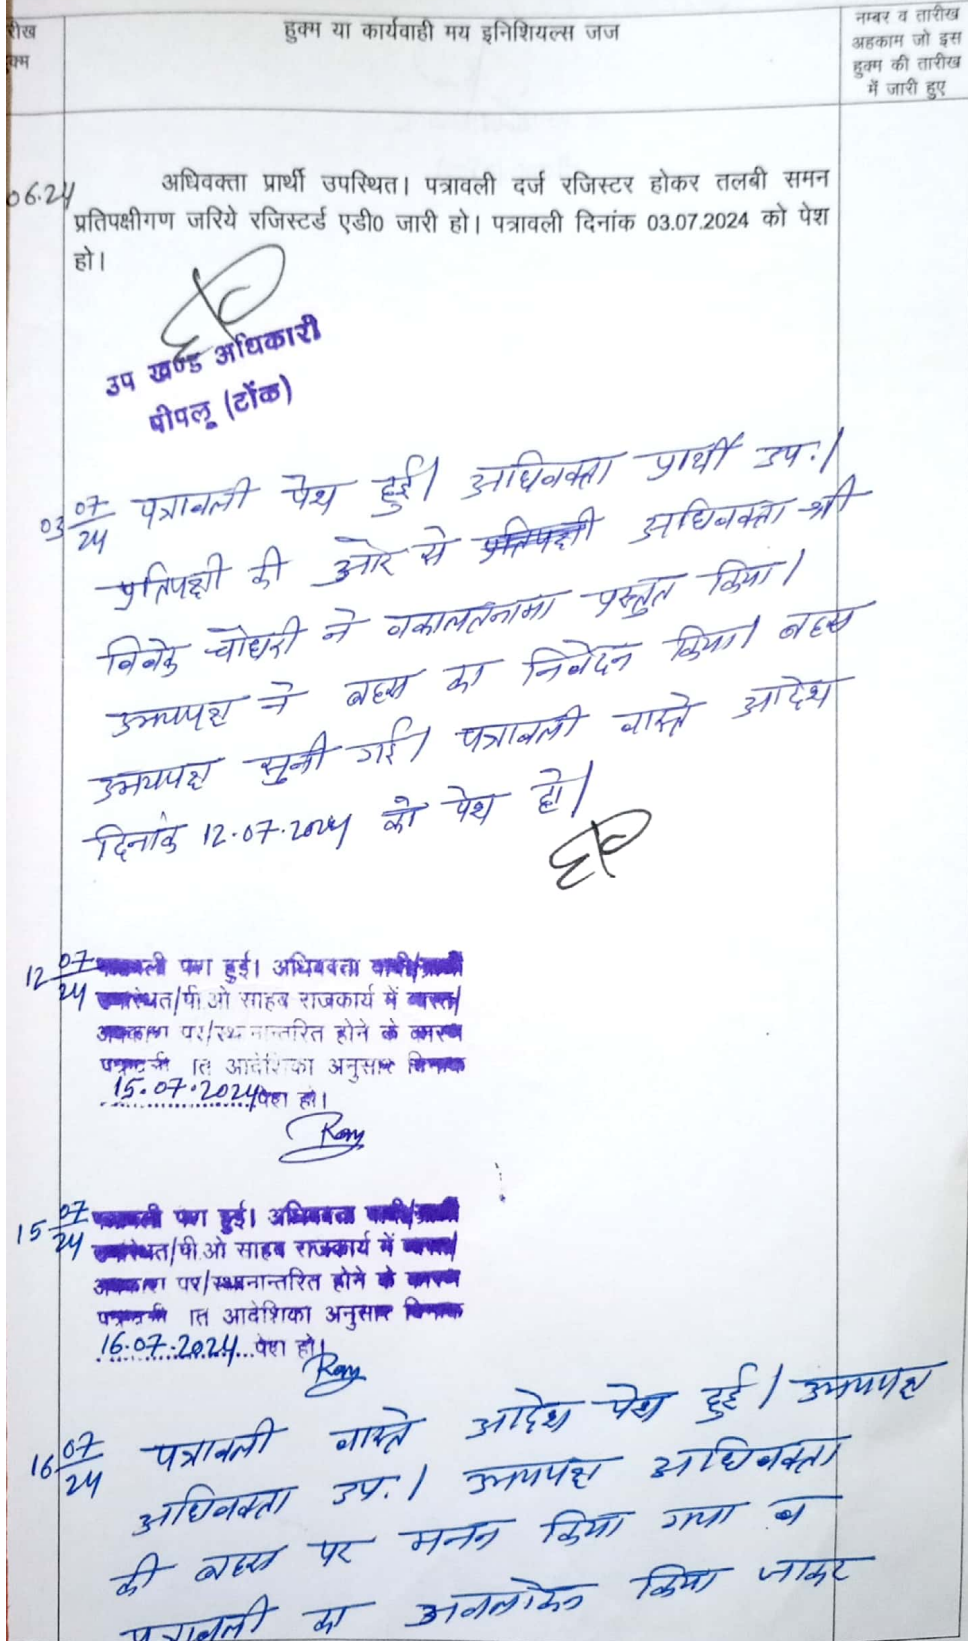 रीख
क्म
हुक्म या कार्यवाही मय इनिशियल्स जज
नम्बर व तारीख
अहकाम जो इस
हुक्म की तारीख
में जारी हुए
06.24
अधिवक्ता प्रार्थी उपस्थित। पत्रावली दर्ज रजिस्टर होकर तलबी समन
प्रतिपक्षीगण जरिये रजिस्टर्ड एडी0 जारी हो। पत्रावली दिनांक 03.07.2024 को पेश
हो।
उप खण्ड अधिकारी
पीपलू (टोंक)
03 07/24 पत्रावली पेश हुई। अधिवक्ता प्रार्थी उप.।
प्रतिपक्षी की ओर से प्रतिपक्षी अधिवक्ता श्री
विवेक चौधरी ने वकालतनामा प्रस्तुत किया।
उभयपक्ष ने बहस का निवेदन किया। बहस
उभयपक्ष सुनी गई। पत्रावली वास्ते आदेश
दिनांक 12.07.2024 को पेश हो।
12 07/24 पत्रावली पेश हुई। अधिवक्ता वादी/प्रार्थी
उपस्थित/पी.ओ साहब राजकार्य में व्यस्त/
अवकाश पर/स्थानान्तरित होने के कारण
पत्रावली आदेशिका अनुसार दिनांक
15.07.2024 पेश हो।
Ray
15 07/24 पत्रावली पेश हुई। अधिवक्ता वादी/प्रार्थी
उपस्थित/पी.ओ साहब राजकार्य में व्यस्त/
अवकाश पर/स्थानान्तरित होने के कारण
पत्रावली आदेशिका अनुसार दिनांक
16.07.2024 पेश हो।
Ray
16 07/24 पत्रावली वास्ते आदेश पेश हुई। उभयपक्ष
अधिवक्ता उप.। उभयपक्ष अधिवक्ता
की बहस पर मनन किया गया व
पत्रावली का अवलोकन किया जाकर